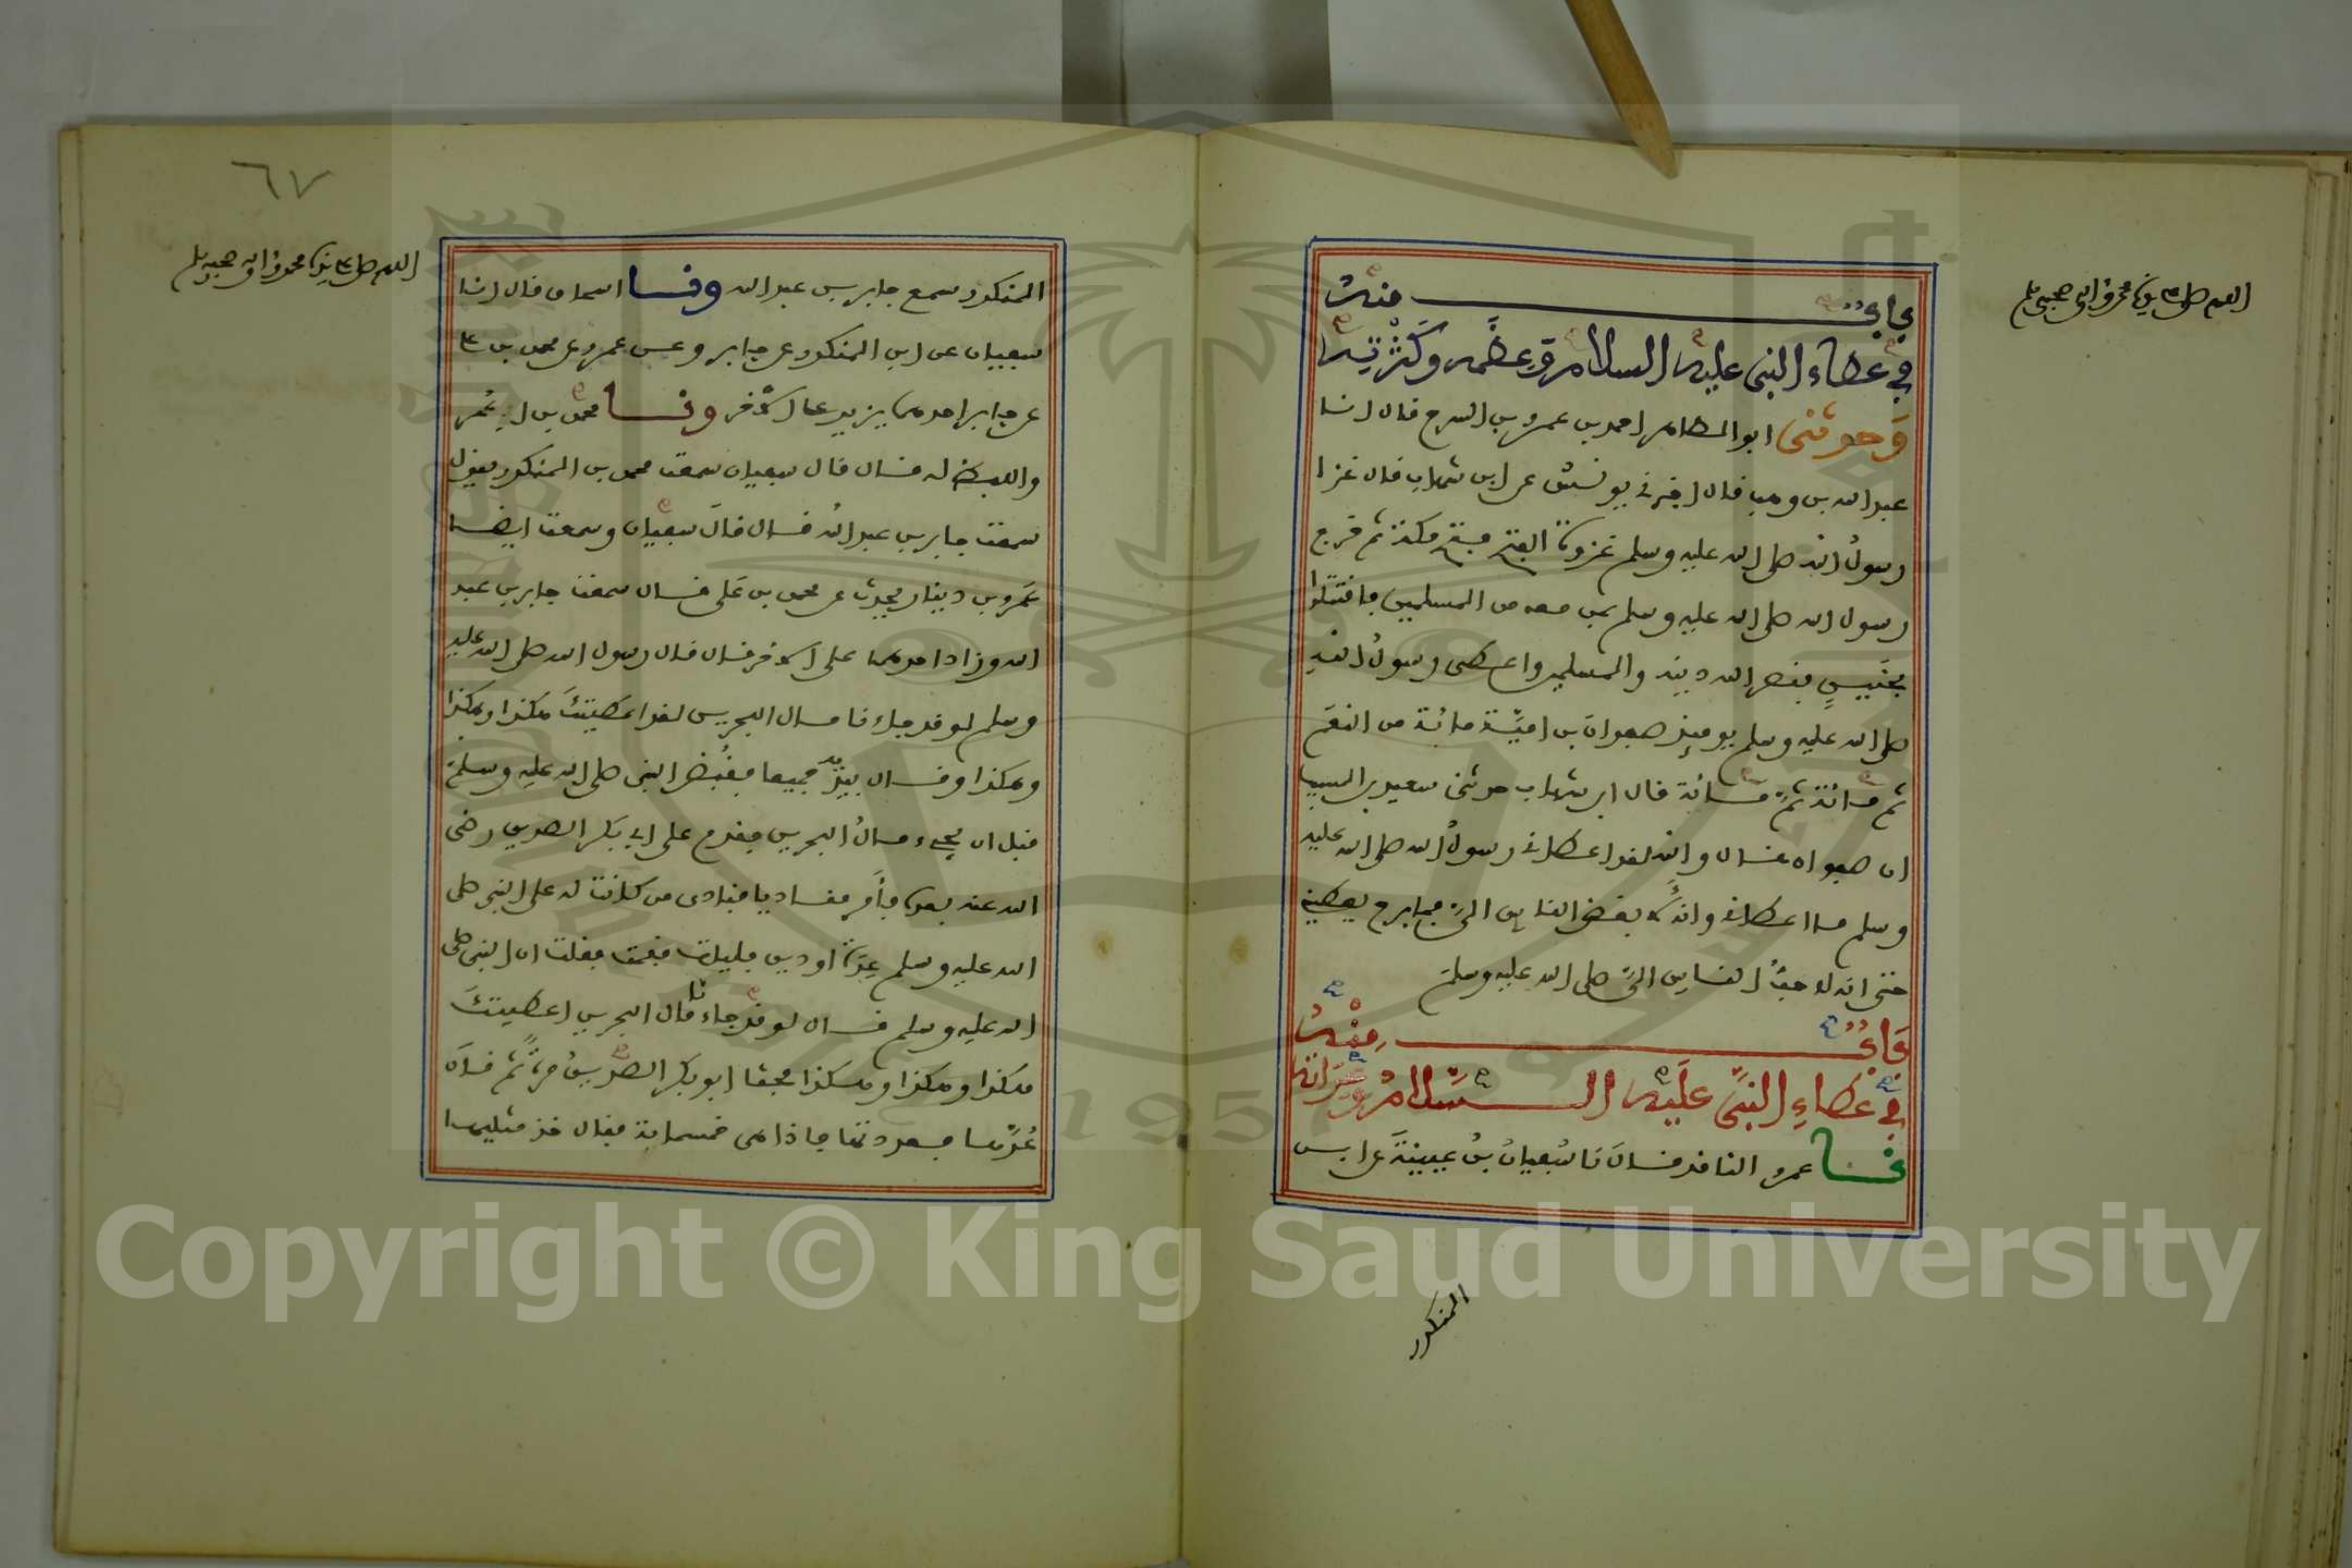 باب منه
في عطاء النبي عليه السلام وعظمه وكثرته
وحدثني ابو الطاهر احمد بن عمرو بن السرح قال انا
عبد الله بن وهب قال اخبرني يونس عن ابن شهاب قال غزا
رسول الله صلى الله عليه وسلم غزوة الفتح فتح مكة ثم خرج
رسول الله صلى الله عليه وسلم بمن معه من المسلمين فاقتتلوا
بحنين فنصر الله دينه والمسلمين واعطى رسول الله
صلى الله عليه وسلم يومئذ صفوان بن امية مائة من النعم
ثم مائة ثم مائة قال ابن شهاب حدثني سعيد بن المسيب
ان صفوان قال والله لقد اعطاني رسول الله صلى الله عليه
وسلم ما اعطاني وانه لابغض الناس الي فما برح يعطيني
حتى انه لاحب الناس الي صلى الله عليه وسلم
باب منه
في عطاء النبي عليه السلام وعداته
نا عمرو الناقد قال نا سفيان بن عيينة عن ابن
المنكدر
٦٧
المنكدر سمع جابر بن عبد الله ونا اسحاق قال انا
سفيان عن ابن المنكدر عن جابر وعن عمرو عن محمد بن علي
عن جابر احدهما يزيد على الاخر ونا محمد بن ابي عمر
واللفظ له قال قال سفيان سمعت محمد بن المنكدر يقول
سمعت جابر بن عبد الله قال قال سفيان وسمعت ايضا
عمرو بن دينار يحدث عن محمد بن علي قال سمعت جابر بن عبد
الله وزاد احدهما على الاخر قال قال رسول الله صلى الله عليه
وسلم لو قد جاءنا مال البحرين لقد اعطيتك هكذا وهكذا
وهكذا وقال بيديه جميعا فقبض النبي صلى الله عليه وسلم
قبل ان يجيء مال البحرين فقدم على ابي بكر الصديق رضي
الله عنه بعده فأمر مناديا فنادى من كانت له على النبي صلى
الله عليه وسلم عدة او دين فليات فقمت فقلت ان النبي صلى
الله عليه وسلم قال لو قد جاءنا مال البحرين اعطيتك
هكذا وهكذا وهكذا فحثا ابو بكر الصديق مرة ثم قال
عدها فعددتها فاذا هي خمسماية فقال خذ مثليها